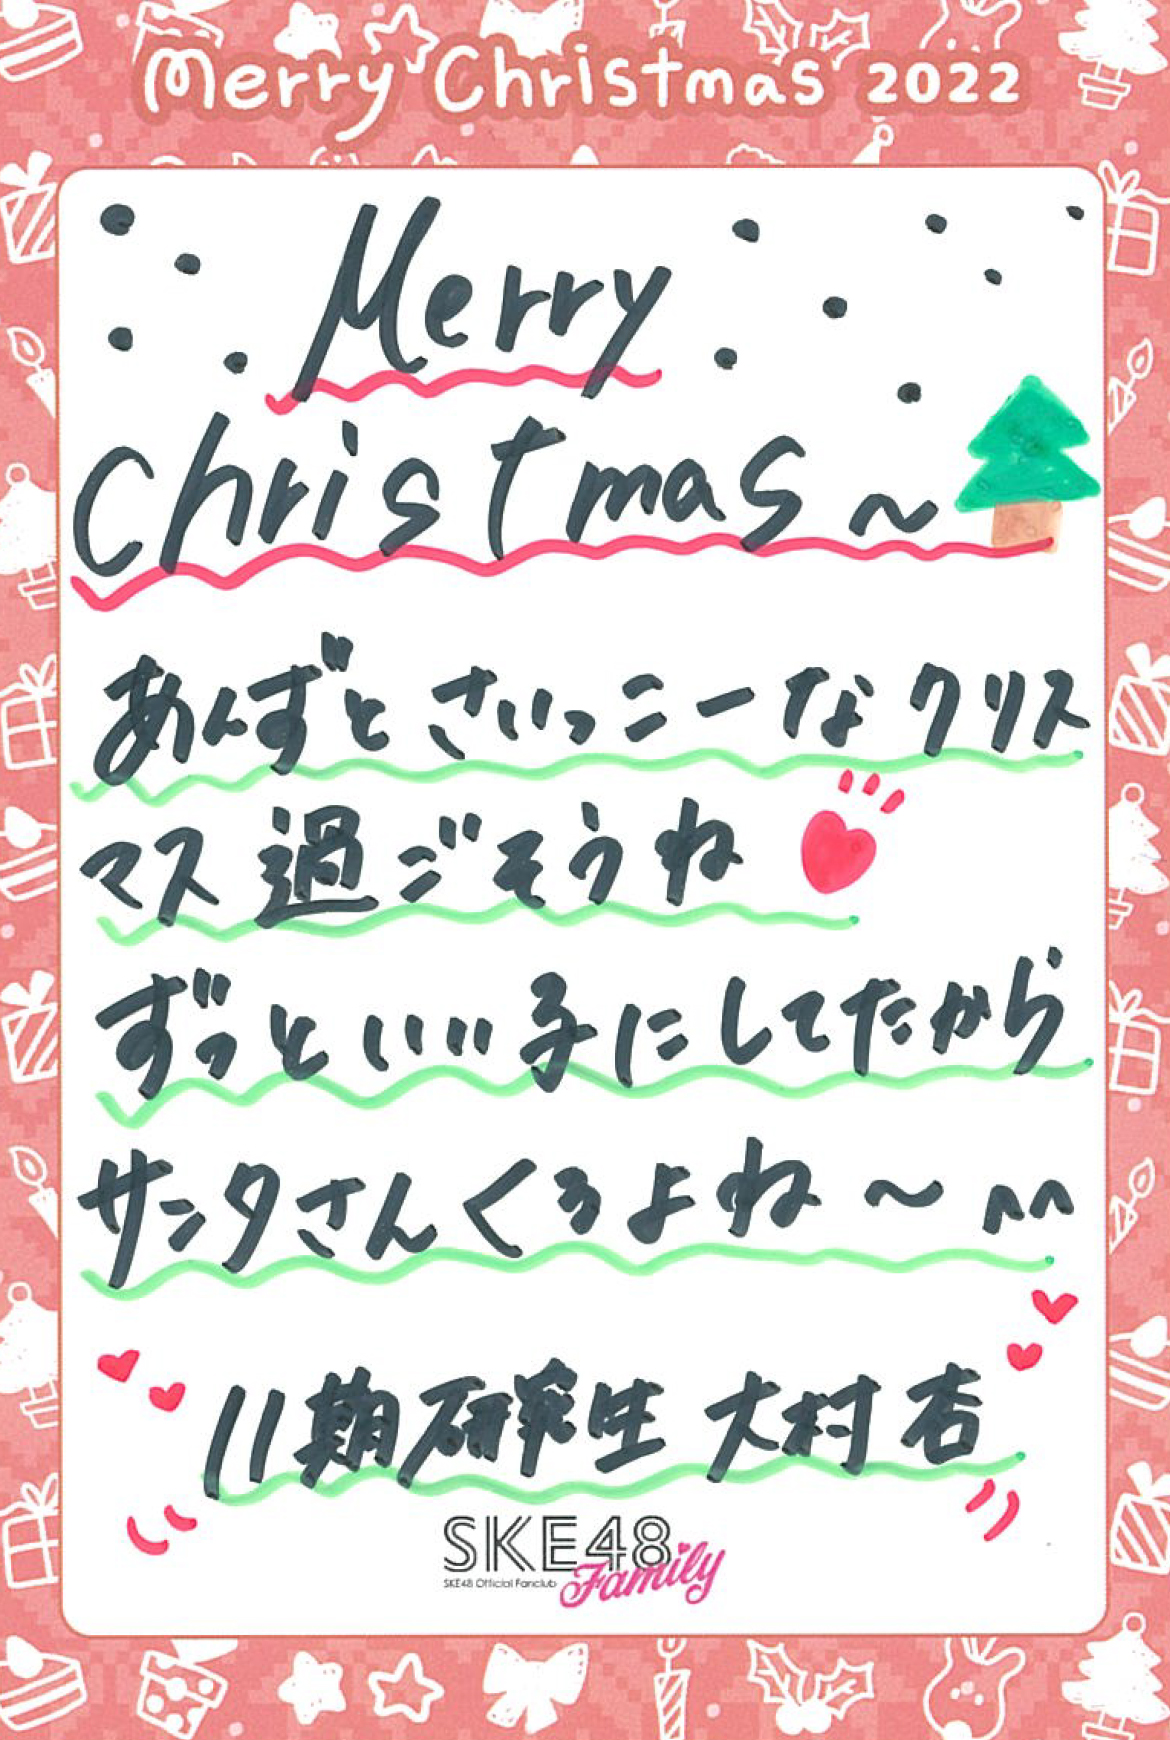 Merry Christmas 2022
Merry
Christmas ～
あんずとさいっこーなクリス
マス過ごそうね
ずっといい子にしてたから
サンタさんくるよね～^^
11期研究生 大村杏
SKE48
SKE48 Official Fanclub
Family